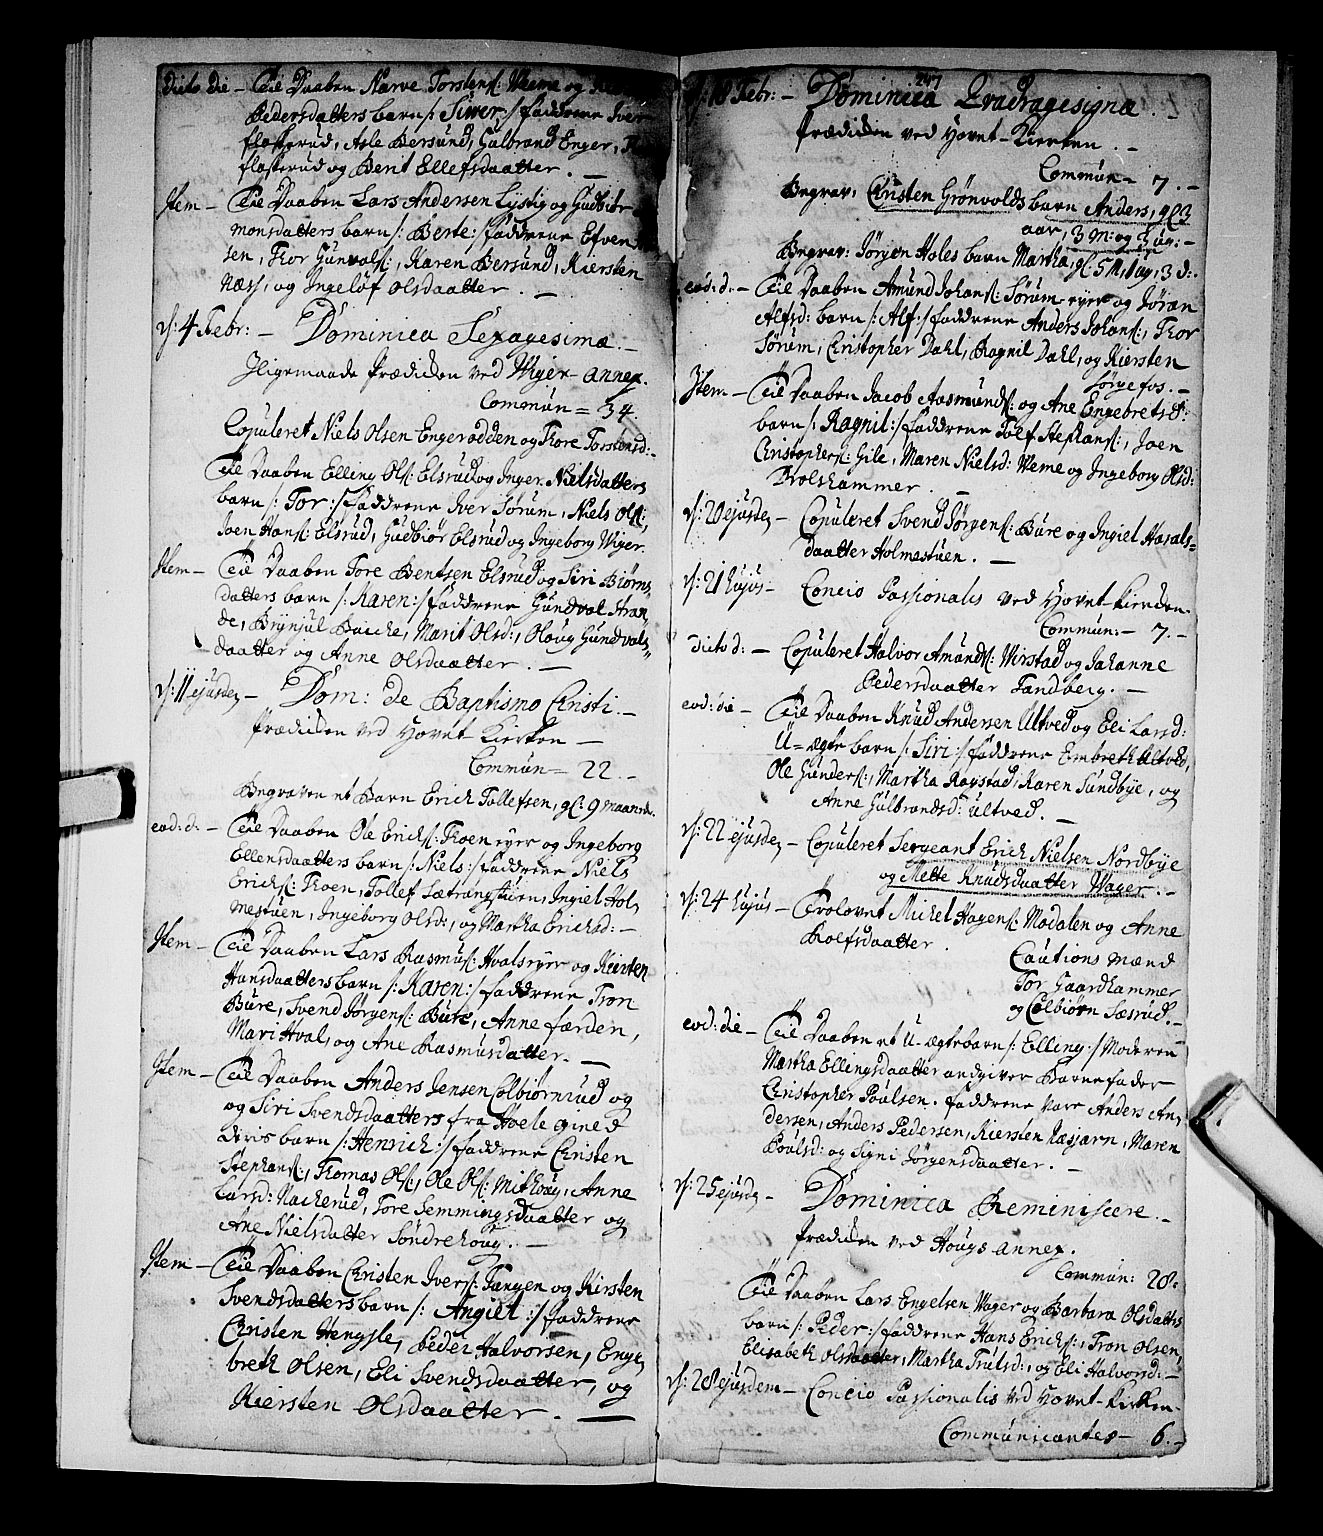 dicto die – Til Daaben Narve Torstens: Weme og
Pedersdatters barn /: Siwer :/ faddrene Iver
floskerud, Asle Bersund, Gulbrand Enger,
floskerud og Berit Ellefsdaatter. –
Item – Til Daaben Lars Andersen Lystig og Gudbiør
monsdatters barn /: Berte :/ faddrene Efven
sen, Thor Gunvals:, Karen Bersund, Kiersten
Næss, og Ingeløf Olsdaatter. –
d: 4 Febr: – Dominica Sexagesima. –
Iligemaade Prædicken ved Wiger-annex.
Commun = 34.
Copuleret Niels Olsen Engerødden og Thore Torstensd: –
Til Daaben Elling Ols: Elsrud og Inger Nielsdatters
barn /: Tor :/ faddrene Iver Sørum, Niels Ols:,
Joen Hans: Elsrud, Gudbiør Elsrud og Ingeborg Wiger.
Item – Til Daaben Tore Bentsen Elsrud og Siri Biørns
datters barn /: Karen :/ faddrene Gundval Stran
de, Brynjul Bricke, Marit Olsd:, Oloug Gundvals=
daatter og Anne Olsdaatter. –
d: 11 ejusdem – Dom: de Baptismo Christi. –
Prædicken ved Hovet Kircken –
Commun = 22. –
Begraven et Barn Erich Tollefsen, gl: 9 maaneder.
eod: d: – Til Daaben Ole Erichs: Thoen eyer og Ingeborg
Ellensdaatters barn /: Niels :/ faddrene Niels
Erichs: Thoen, Tollef Sætrangstuen, Ingiel Hol,
mestuen, Ingeborg Olsd:, og Martha Erichsd: –
Item – Til Daaben Lars Rasmus: Hvalseyer og Kiersten
Hansdaatters barn /: Karen :/ faddrene Tron
Bure, Svend Jørgens: Bure, Anne færden,
Mari Hval, og Ane Rasmusdatter. –
Item – Til Daaben Anders Jensen Colbiørnrud og
og Siri Svendsdaatters fra Hoele gined
deris barn /: Henrich :/ faddrene Christen
Stephans:, Thomas Ols:, Ole Ols: Mithoug, Anne
Larsd: Nackerud, Tore Semmingsdaatter og
Ane Nielsdatter Søndrehoug. –
Item – Til Daaben Christen Ivers: Tangen og Kirsten
Svendsdatters barn /: Angiel :/ faddrene
Christen Hengsle, Peder Halvorsen, Enge,
breth Olsen, Eli Svendsdaatter, og
Kiersten Olsdaatter. –
247
d: 18 Febr: – Dominica Qvadragesigna. –
Prædicken ved Hovet-Kircken. –
Commun = 7. –
Begrav: Christen Grønvolds barn Anders, gl 3
aar, 3 M: og 3 ug: –
Begrav: Jørgen Holes barn Martha, gl 5 M, 1 ug, 3 d:
eod: d: – Til Daaben Amund Johans: Sørum-eyer og Jøran
Alfsd: barn /: Alf :/ faddrene Anders Johans:, Thor
Sørum, Christopher Dahl, Ragnil Dahl, og Kiersten
Sørgefos. –
Item – Til Daaben Jacob Aasmunds: og Ane Engebretsd:
barn /: Ragnil :/ faddrene Tolf Stephans:, Joen
Christophers: Gile, Maren Nielsd: Weme og Ingeborg Olsd:
Trolshammer. –
d: 20 ejusdem – Copuleret Svend Jørgens: Bure og Ingiel Harals=
daatter Holmestuen. –
d: 21 hujus – Concio Passionalis ved Hovet-kircken.
Commun: – 7. –
dicto d: – Copuleret Halvor Amunds: Wirstad og Johanne
Pedersdaatter Tandberg. –
eod: die – Til Daaben Knud Andersen Ultved og Eli Larsd:
U=ægte barn /: Siri :/ faddrene Embreth Ultved,
Ole Gunders:, Martha Raystad, Karen Sundbye, og
Anne Gulbrandsd: Ultved. –
d: 22 ejusdem – Copuleret Sergeant Erich Nielsen Nordbye
og Mette Knudsdaatter Wager. –
d: 24 hujus – Trolovet Michel Hagens: Modalen og Anne
Rolfsdaatter. Cautions mænd
Tor Gaardhammer
og Colbiørn Sæsrud. –
eod: die – Til Daaben et U-ægte barn /: Elling :/ Moderen
Martha Ellingsdaatter angiver Barnefader
Christopher Poulsen. faddrene vare Anders An,
dersen, Anders Pedersen, Kiersten Næsjarn, Maren
Poulsd: og Signi Jørgensdaatter. –
d: 25 ejusdem – Dominica Reminiscere. –
Prædicken ved Hougs annex.
Commun: 28:
Til Daaben Lars Engelsen Wager og Barbara Olsdatters
barn /: Peder :/ faddrene Hans Erichs:, Tron Olsen,
Elisabeth Olsdaatter, Martha Trulsd:, og Eli Halvorsd: –
d: 28 ejusdem – Concio Passionalis ved Hovet-kircken.
Communicantes – 6. –